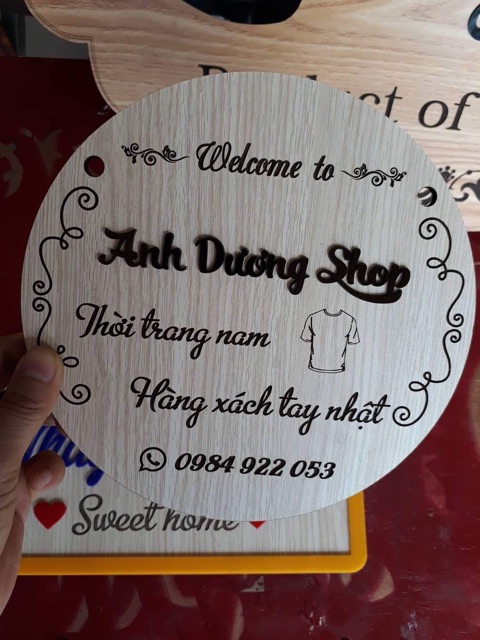 Product of
Welcome to
Anh Dương Shop
Thời trang nam
Hàng xách tay nhật
0984 922 053
Sweet home